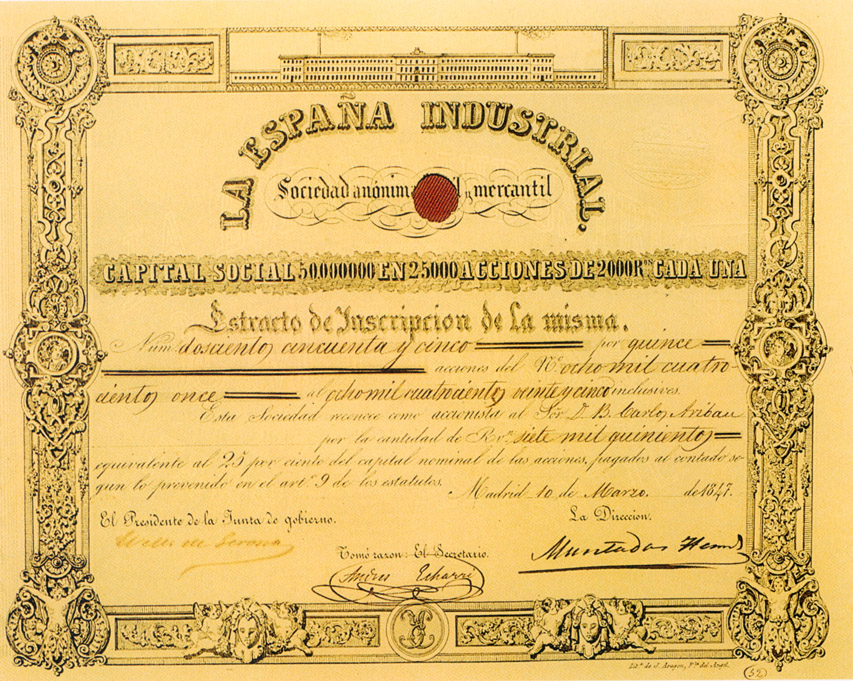 LA ESPAÑA INDUSTRIAL.
Sociedad anónima l y mercantil
CAPITAL SOCIAL 50.000000 EN 25000 ACCIONES DE 2000 Rs CADA UNA
Estracto de Inscripcion de La misma.
Num. doscientos cincuenta y cinco por quince
acciones del Nº ocho mil cuatro-
cientos once al ocho mil cuatrocientos veinte y cinco inclusives.
Esta Sociedad reconoce como accionista al Sór D. B. Carlos Aribau
por la cantidad de R.vn siete mil quinientos
equivalente al 25 por ciento del capital nominal de las acciones, pagados al contado se-
gun lo prevenido en el artº 9 de los estatutos. Madrid 10 de Marzo. de 1847.
El Presidente de la Junta de gobierno.
La Direccion.
Tomó razon: El Secretario.
Muntadas Herms
Andres Echarri
Litª de J. Aragon, Pta del Angel.
52